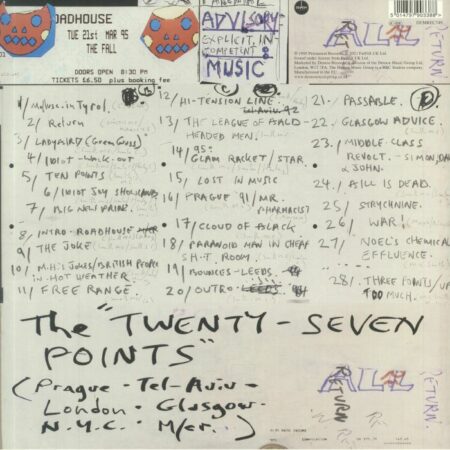 ROADHOUSE
TUE 21st MAR 95
THE FALL
DOORS OPEN 8:30 PM
TICKETS £6.50 plus booking fee
ADVISORY
EXPLICIT, IN
COMPETINT &
MUSIC
ALL
RETURN
RETURN
1/ Mollusc in Tyrol.
2/ Return
3/ LADYBIRD (Green Grass)
4/ IDIOT - WALK-OUT
5/ TEN POINTS
6/ IDIOT JOY SHOWLAND
7/ BIG NEW PRINZ.
8/ INTRO - ROADHOUSE
9/ THE JOKE
10/ M.H.'s JOKES/BRITISH PEOPLE
IN HOT WEATHER
11/ FREE RANGE.
12/ HI-TENSION LINE.
Tel-Aviv 92
13/ THE LEAGUE OF BALD-
HEADED MEN.
14/ 95:
GLAM RACKET/STAR.
15/ LOST IN MUSIC
16/ PRAGUE '91/MR.
PHARMACIST
17/ CLOUD OF BLACK
18/ PARANOID MAN IN CHEAP
SH-T ROOM.
19/ BOUNCES - LEEDS.
20/ OUTRO - LEEDS.
21/- PASSABLE.
22/- GLASGOW ADVICE.
23./ MIDDLE-CLASS
REVOLT. - SIMON, DAVE
& JOHN.
24./ BILL IS DEAD.
25/ STRYCHNINE.
26/ WAR!
27/ NOEL'S CHEMICAL
EFFLUENCE.
28/. THREE POINTS/UP
TOO MUCH.
The "TWENTY-SEVEN
POINTS"
(Prague - Tel-Aviv -
London - Glasgow -
N.Y.C. - M/cr.)
ALL
RETURN
RETURN